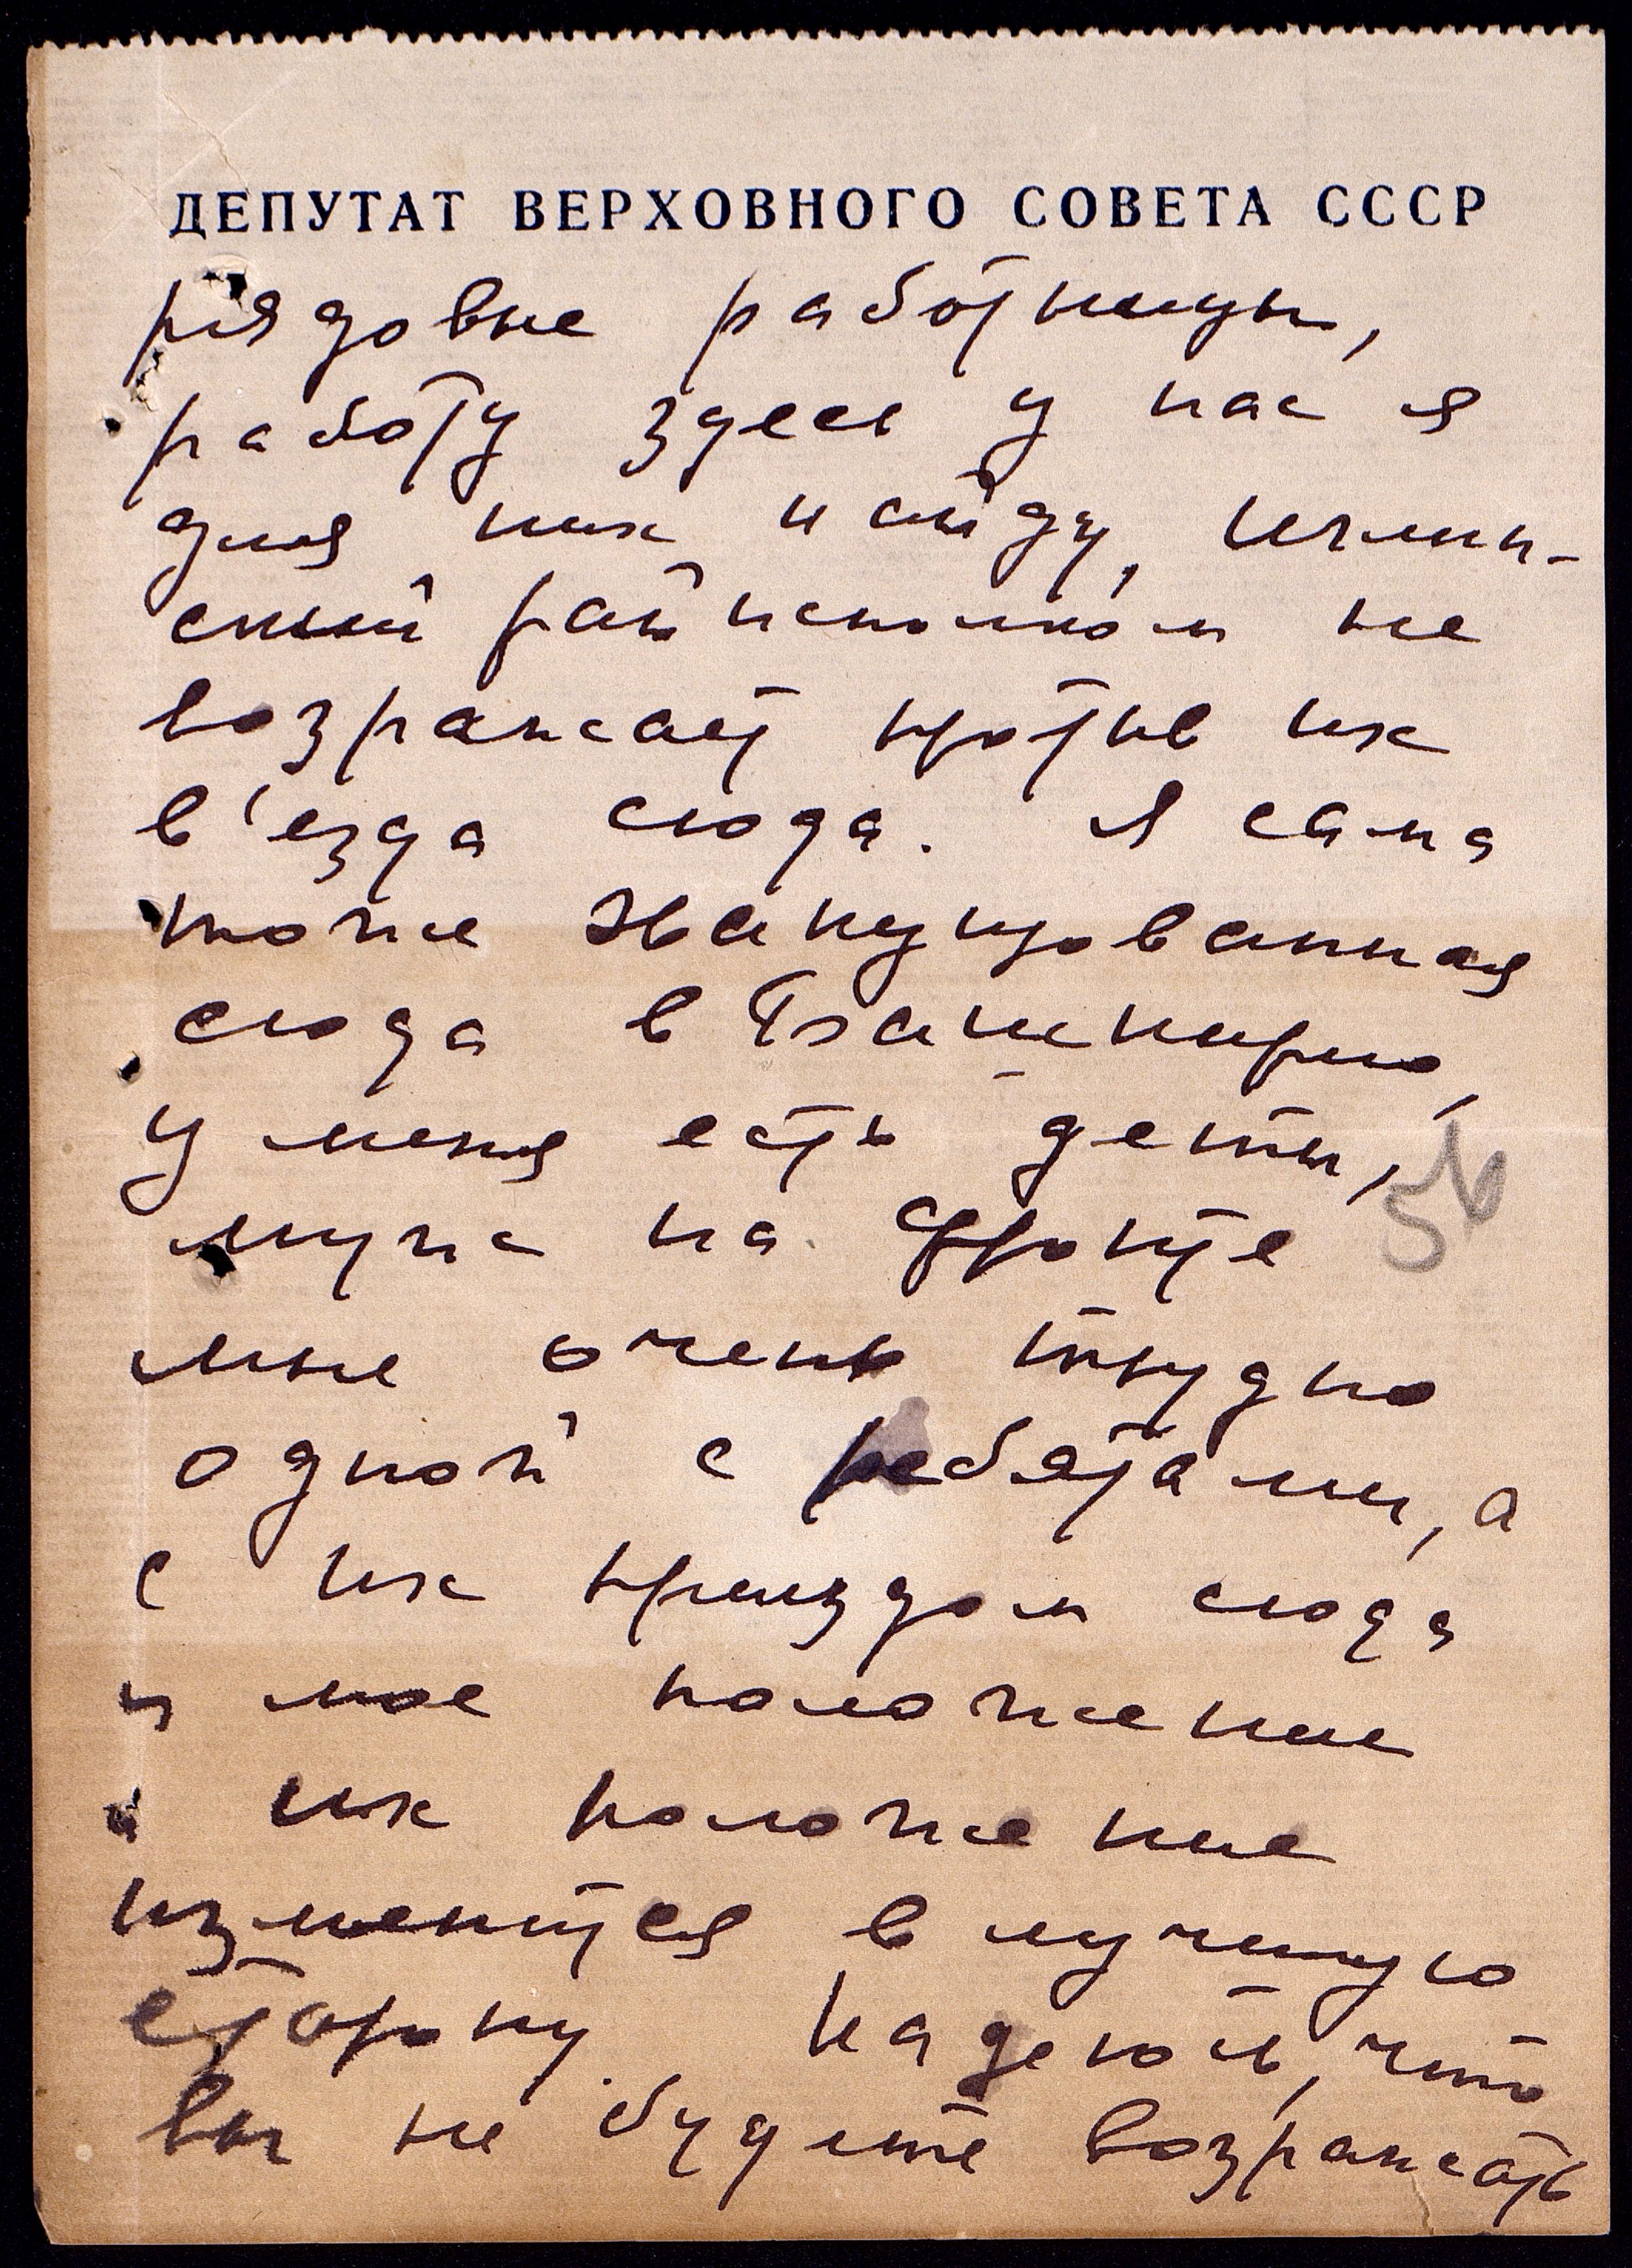 ДЕПУТАТ ВЕРХОВНОГО СОВЕТА СССР
рядовые работницы,
работу здесь у нас я
для них найду, Иглин-
ский райисполком не
возражает против их
в'езда сюда. Я сама
тоже эвакуированная
сюда в Башкирию,
у меня есть дети,
муж на фронте
мне очень трудно
одной с ребятами, а
с их приездом сюда
и мое положение
и их положение
изменится в лучшую
сторону. Надеюсь, что
вы не будете возражать